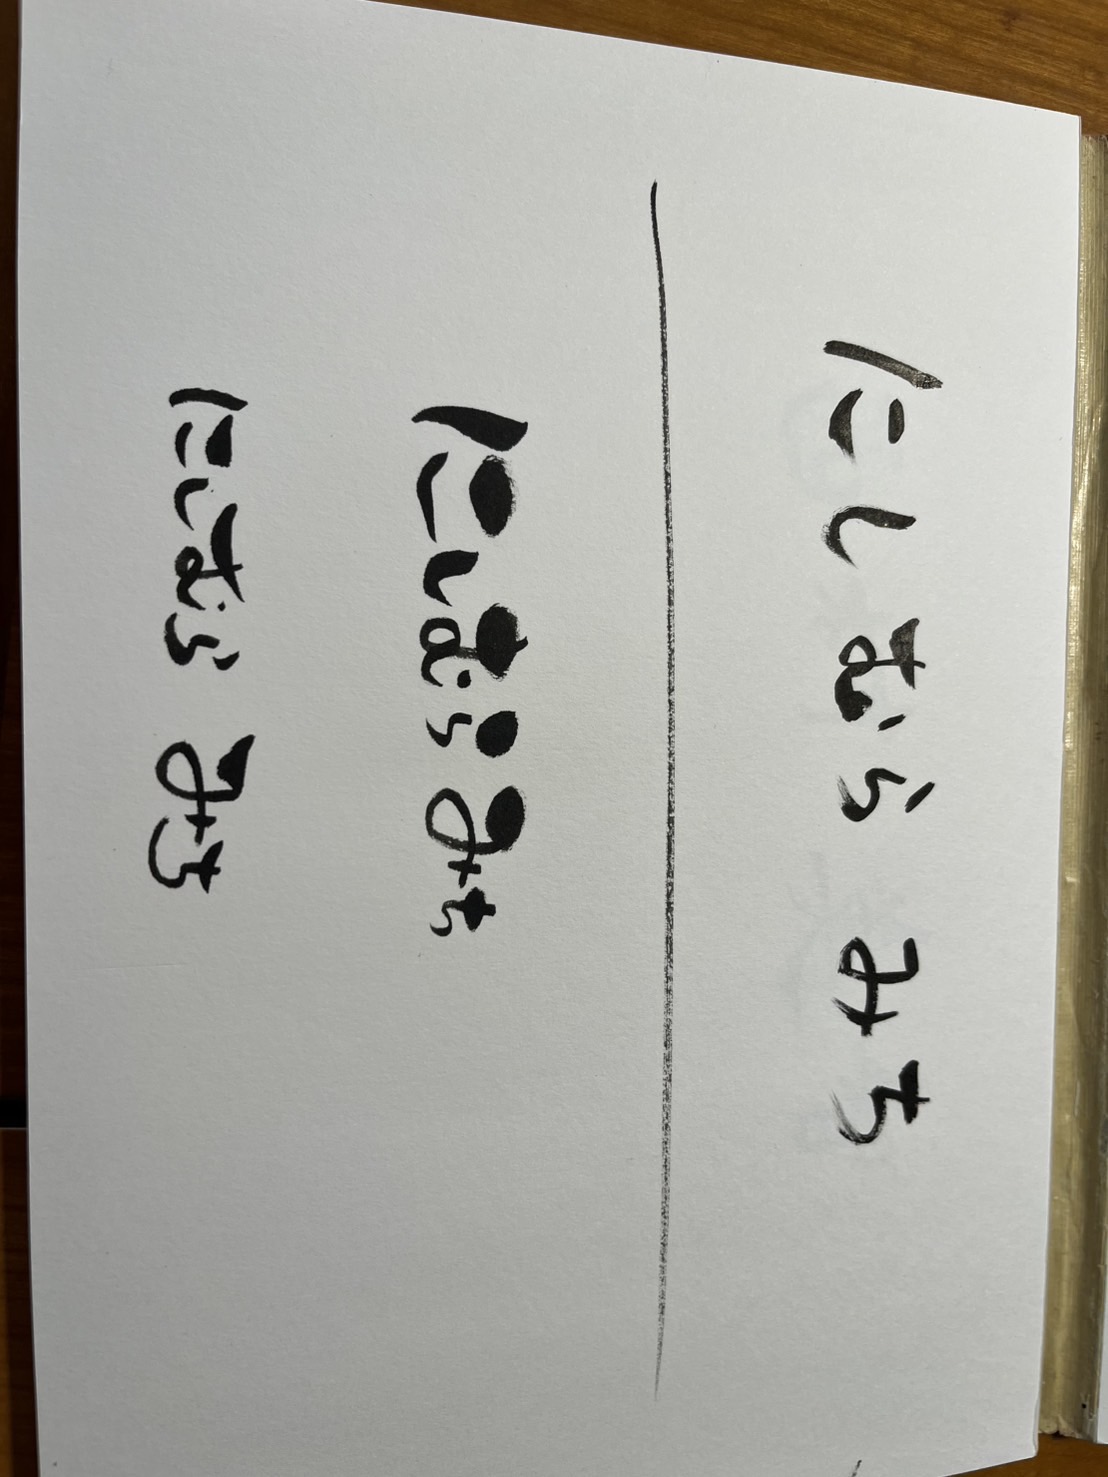 にしむら みち
にしむら みち
にしむら みち